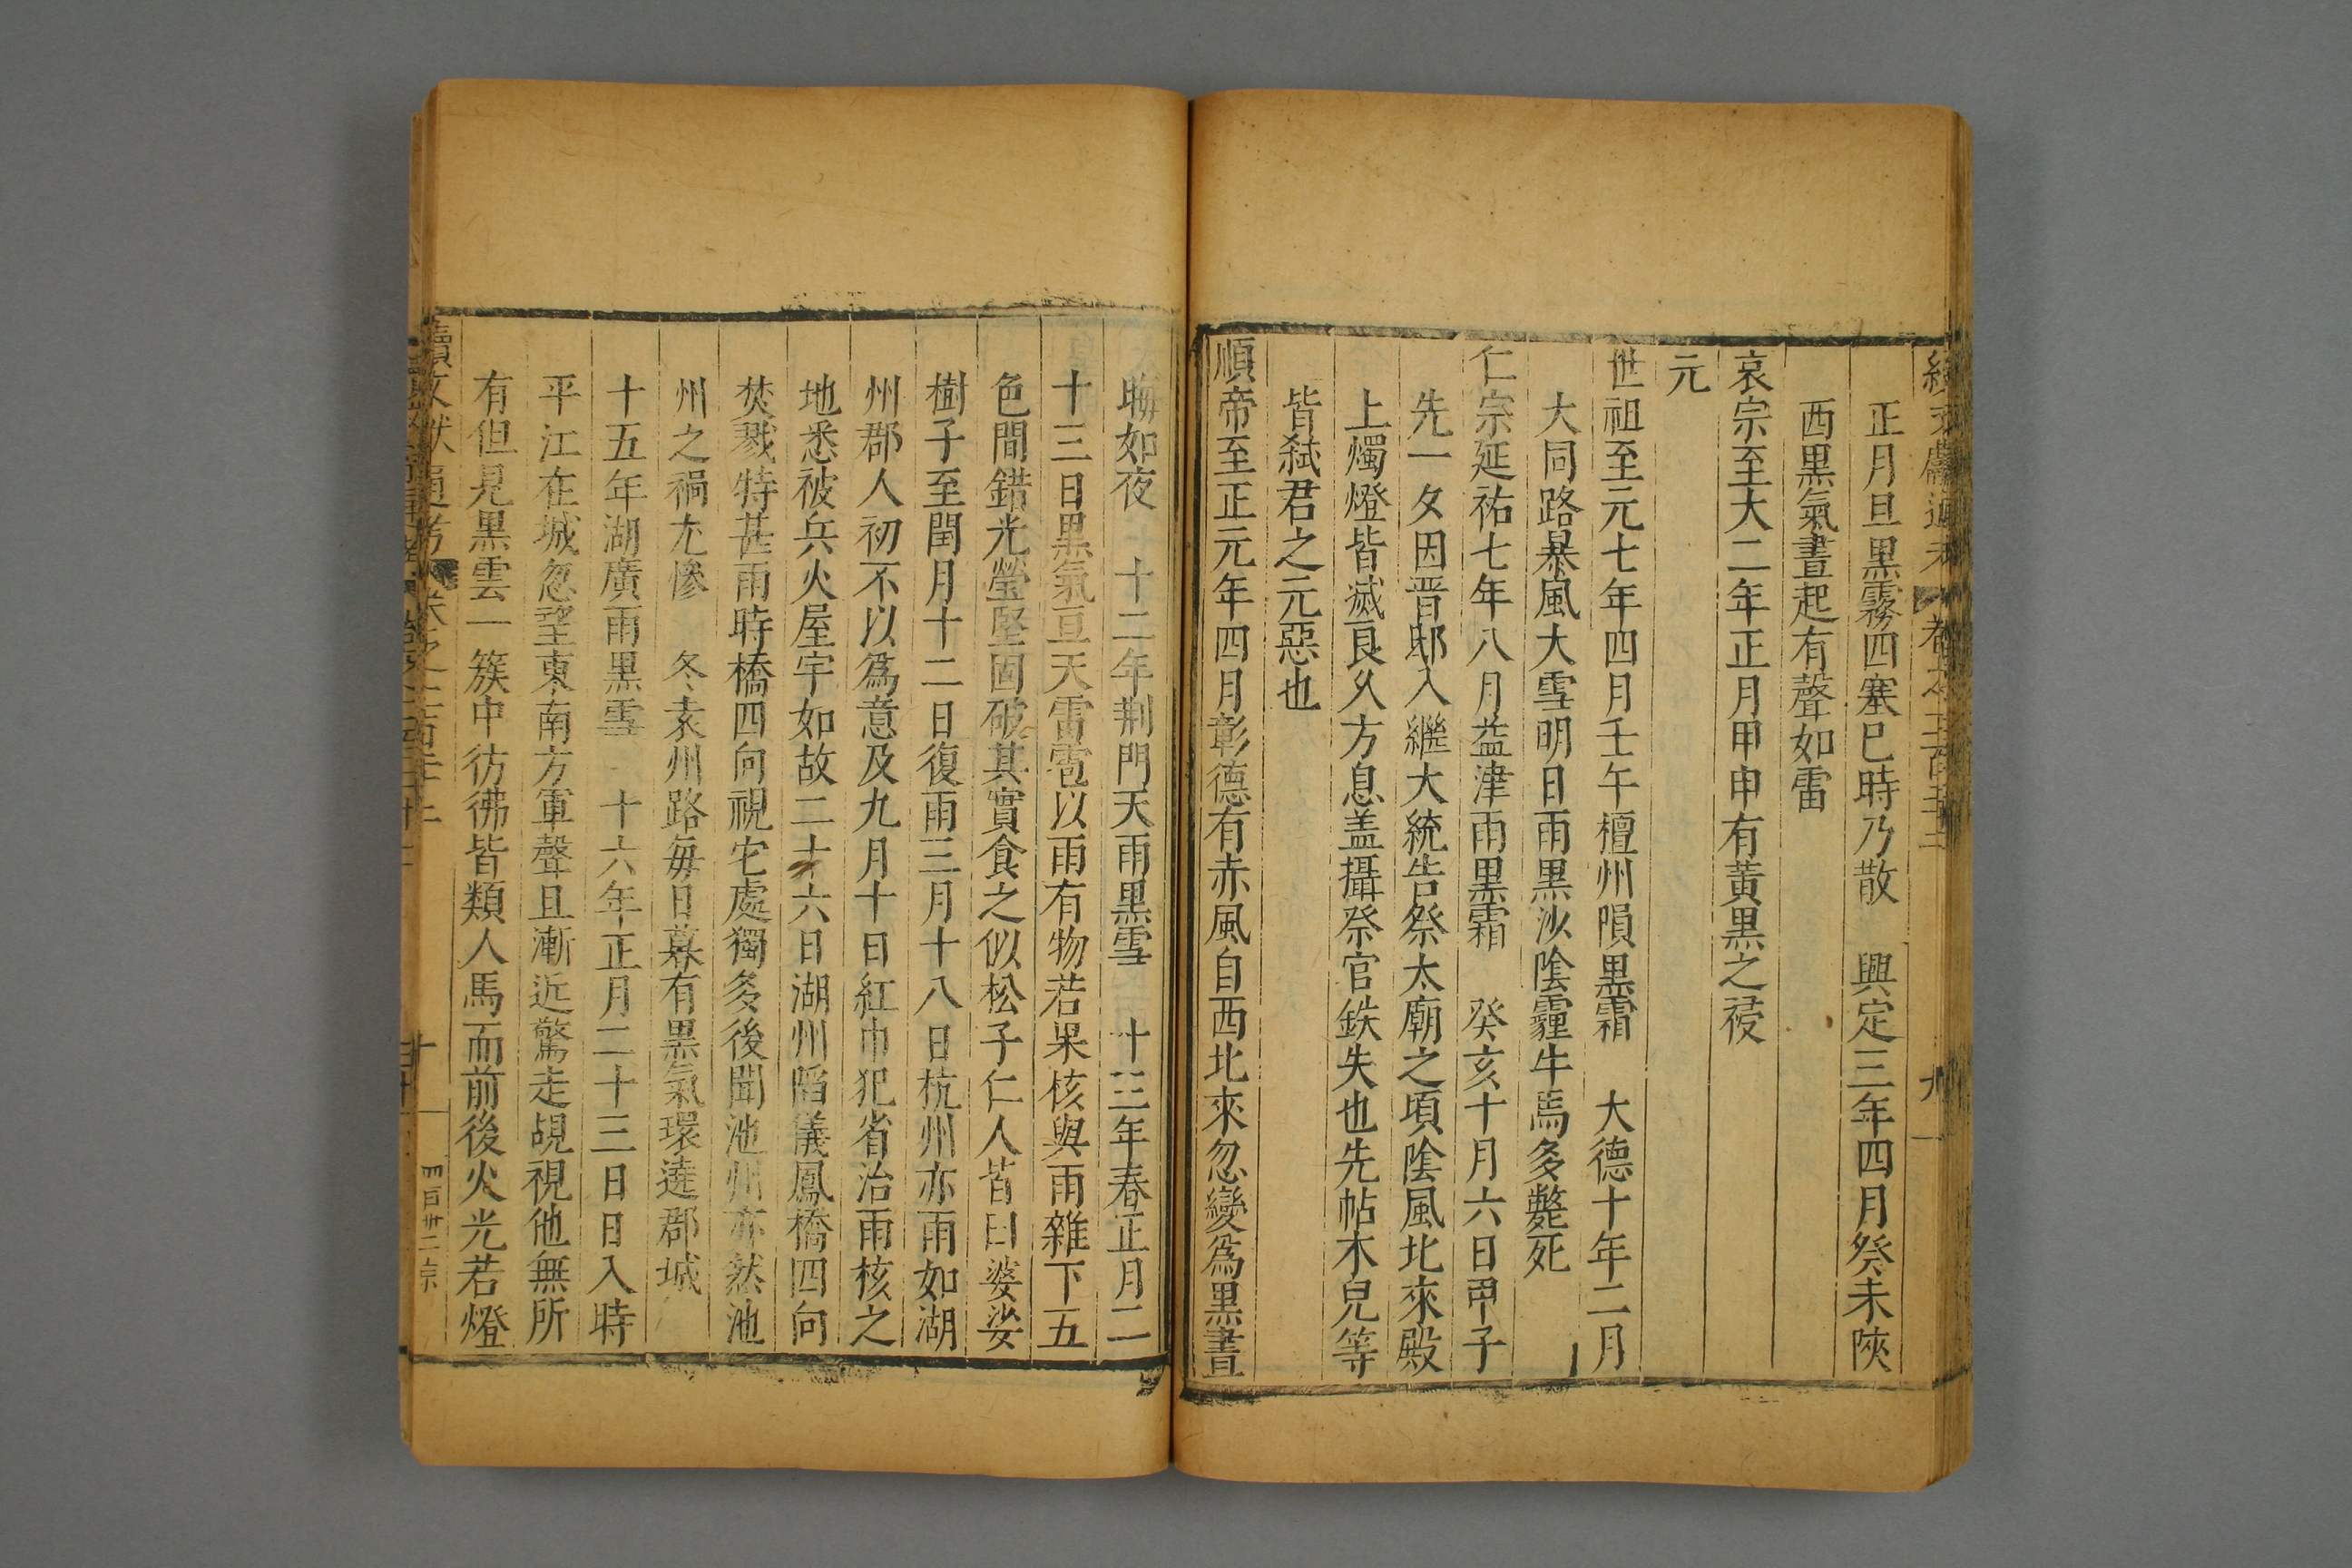 續文獻通考 卷之二百二十二 九
正月旦黒霧四塞巳時乃散 興定三年四月癸未陜
西黒氣晝起有聲如雷
哀宗至大二年正月甲申有黃黒之祲
元
世祖至元七年四月壬午檀州隕黒霜 大德十年二月
大同路暴風大雪明日雨黒沙陰霾牛馬多斃死
仁宗延祐七年八月益津雨黒霜 癸亥十月六日甲子
先一夕因晋邸入繼大統告祭太廟之頃陰風北來殿
上燭燈皆滅良久方息盖攝祭官鉄失也先帖木兒等
皆弑君之元惡也
順帝至正元年四月彰德有赤風自西北來忽變爲黒晝
晦如夜 十二年荆門天雨黒雪 十三年春正月二
十三日黒氣亘天雷雹以雨有物若果核與雨雜下五
色間錯光瑩堅固破其實食之似松子仁人皆曰婆娑
樹子至閏月十二日復雨三月十八日杭州亦雨如湖
州郡人初不以爲意及九月十日紅巾犯省治雨核之
地悉被兵火屋宇如故二十六日湖州陷儀鳳橋四向
焚戮特甚雨時橋四向視它處獨多後聞池州亦然池
州之禍尤慘 冬袁州路每日暮有黒氣環遶郡城
十五年湖廣雨黒雪 十六年正月二十三日日入時
平江在城忽望東南方軍聲且漸近驚走覘視他無所
有但見黒雲一簇中彷彿皆類人馬而前後火光若燈
續文獻通考 卷之二百二十二 十 四百卅二宗